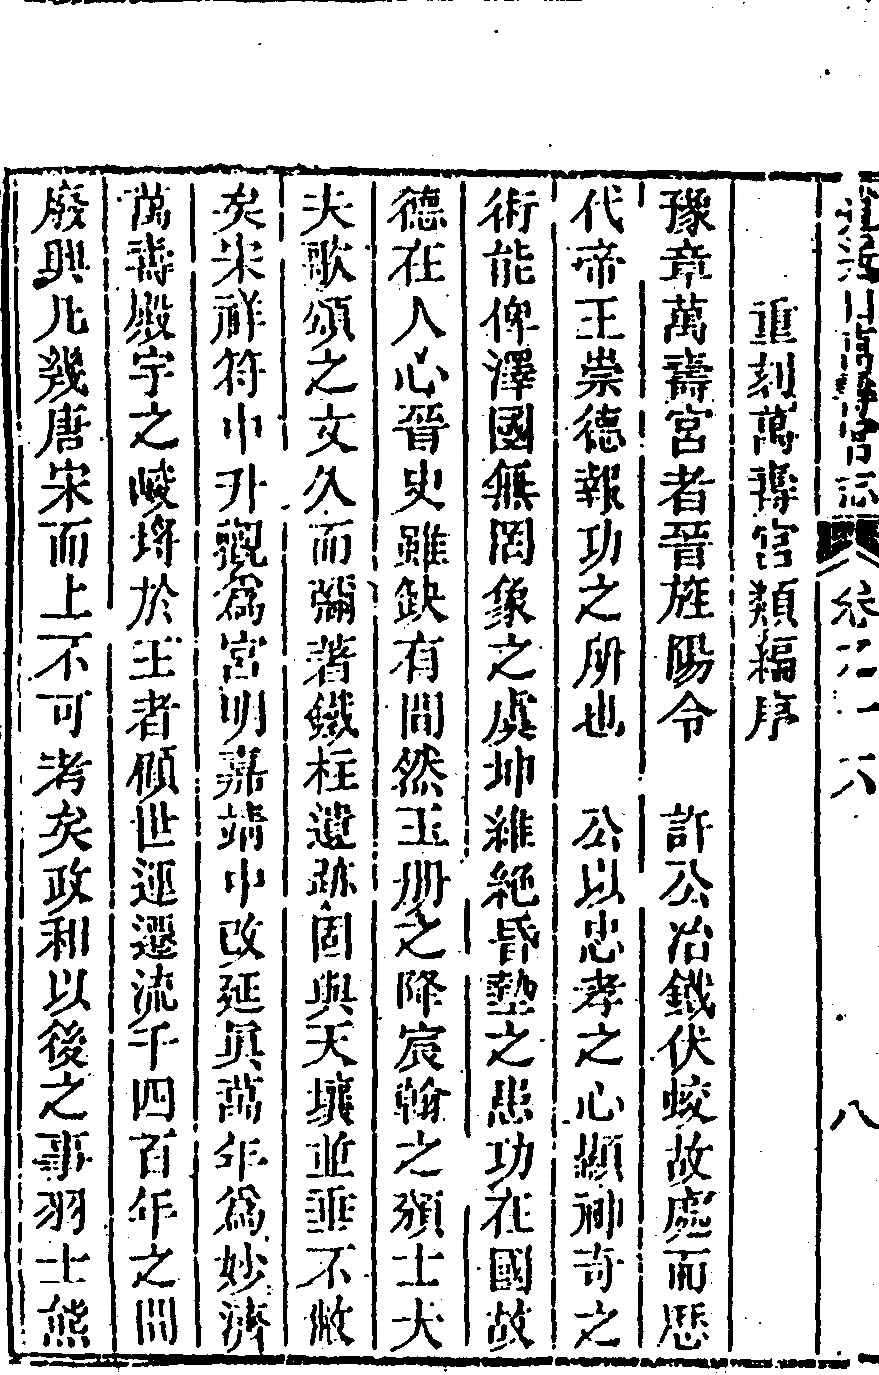 逍遙山萬壽宮志 卷之十六 八
重刻萬壽宮類編序
豫章萬壽宮者晉旌陽令 許公冶鐵伏蛟故處而歷
代帝王崇德報功之所也 公以忠孝之心顯神奇之
術能俾澤國無罔象之虞坤維絕昏墊之患功在國故
德在人心晉史雖缺有間然玉册之降宸翰之頒士大
夫歌頌之文久而彌著鐵柱遺跡固與天壤並垂不敝
矣宋祥符中升觀爲宮明嘉靖中改延眞萬年爲妙濟
萬壽殿宇之崚埒於王者傾世運遷流千四百年之間
廢興凡幾唐宋而上不可考矣政和以後之事羽士熊